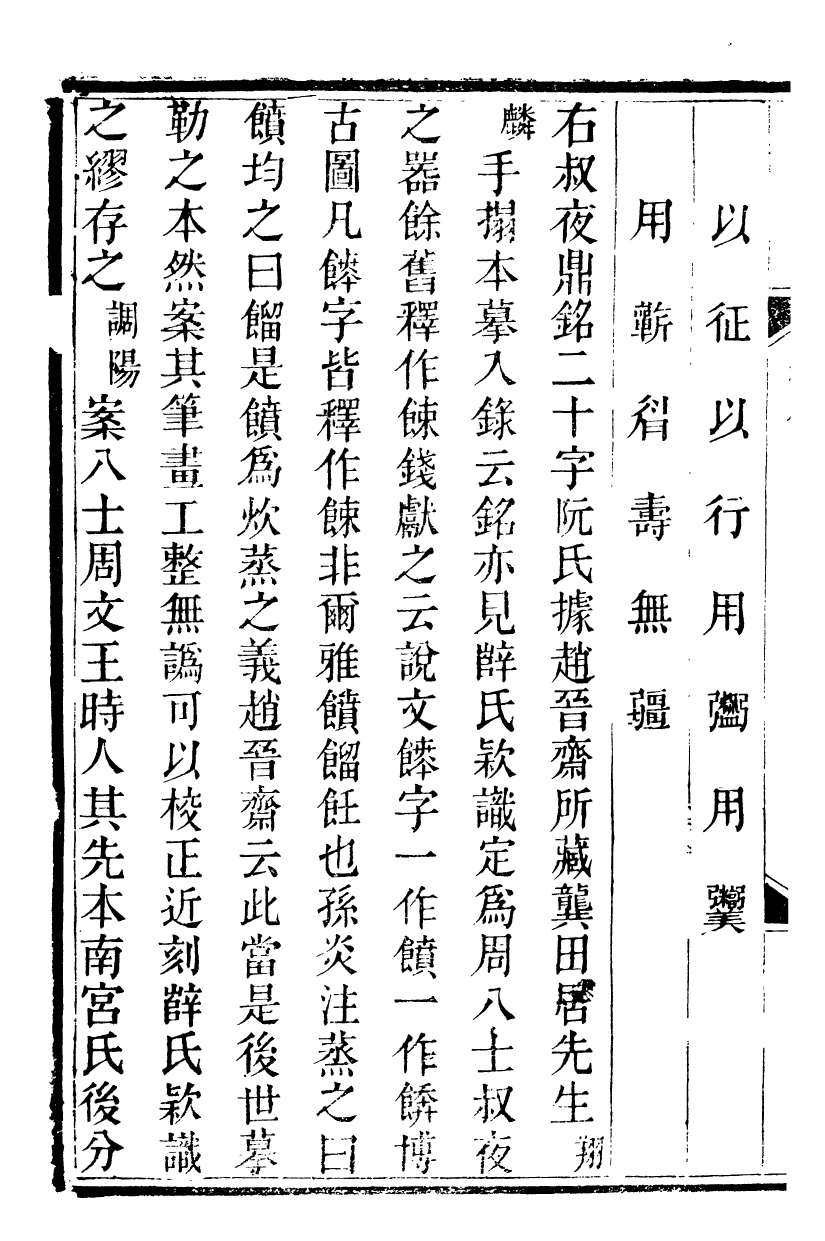 以征以行用鬻用𩱧
用蘄眉壽無疆
右叔夜鼎銘二十字阮氏據趙晉齋所藏龔田居先生翔
麟手搨本摹入錄云銘亦見薛氏欵識定爲周八士叔夜
之器餘舊釋作餗錢獻之云說文餴字一作饙一作餴博
古圖凡餴字皆釋作餗非爾雅饙餾飪也孫炎注蒸之曰
饙均之曰餾是饙爲炊蒸之義趙晉齋云此當是後世摹
勒之本然案其筆畫工整無譌可以校正近刻薛氏欵識
之繆存之調陽案八士周文王時人其先本南宮氏後分